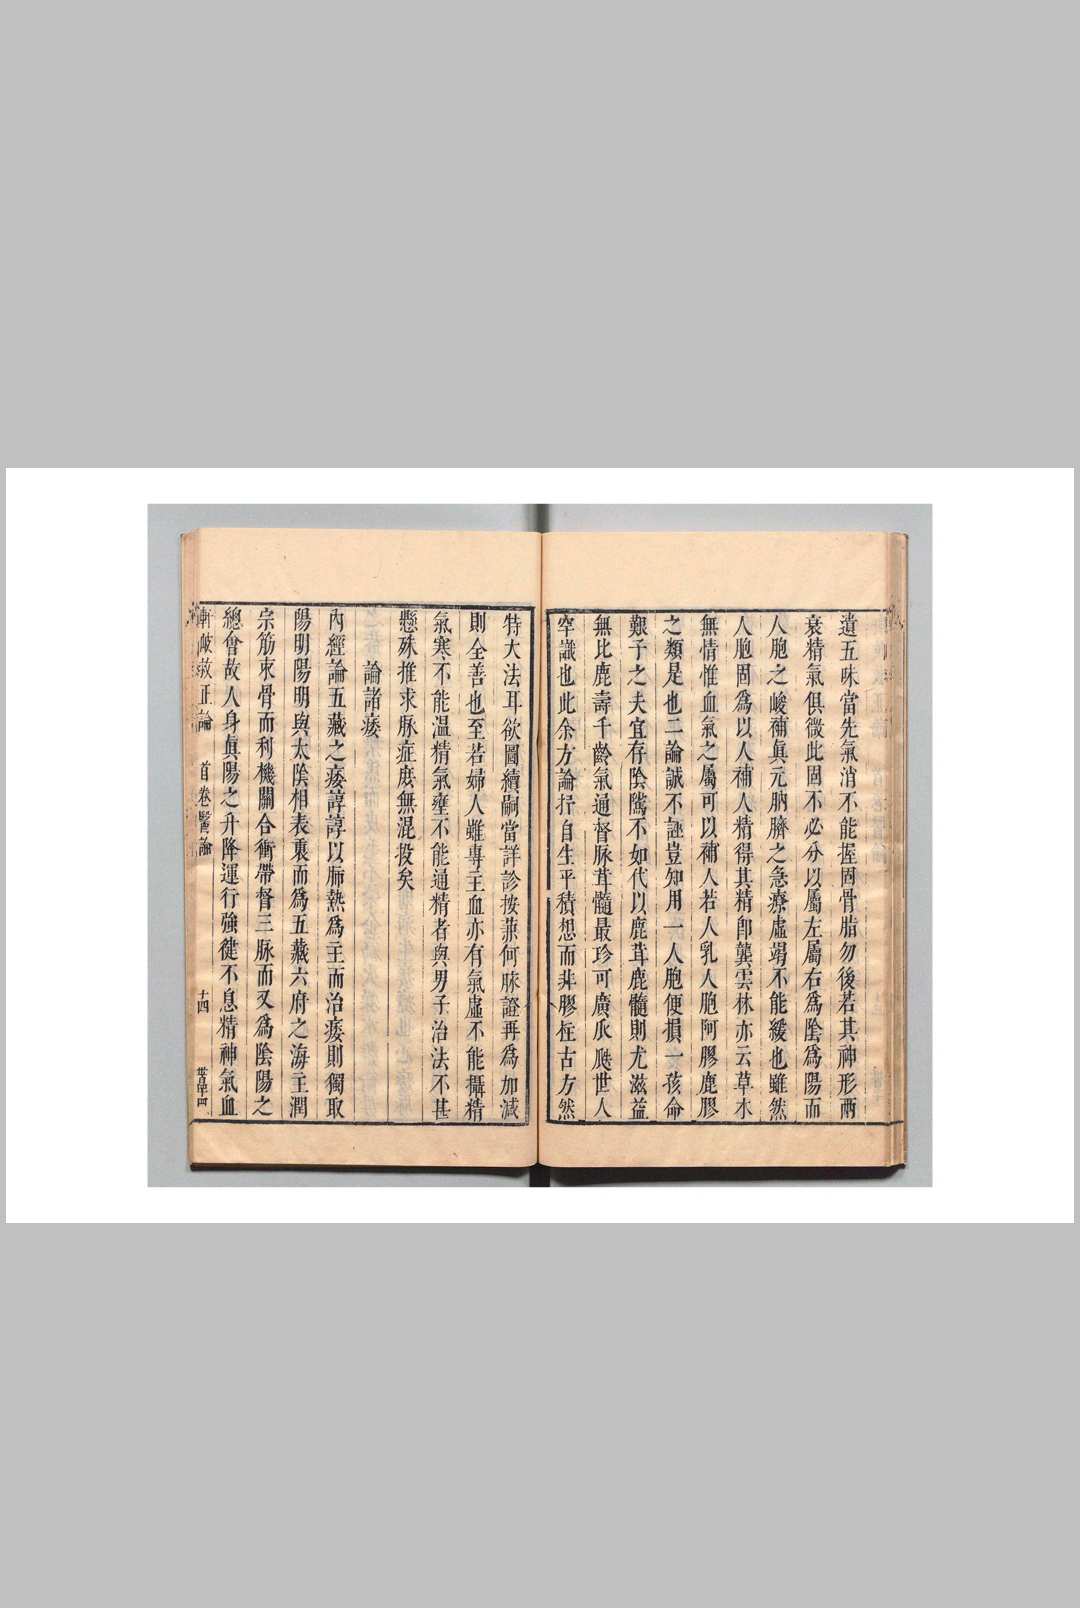 遺五味當先氣消不能握固骨脂勿後若其神形兩
衰精氣俱微此固不必分以屬左屬右爲陰爲陽而
人胞之峻補眞元肭臍之急療虛竭不能緩也雖然
人胞固爲以人補人精得其精卽龔雲林亦云草木
無情惟血氣之屬可以補人若人乳人胞阿膠鹿膠
之類是也二論誠不誣豈知用一人胞便損一孩命
艱子之夫宜存陰騭不如代以鹿茸鹿髓則尤滋益
無比鹿壽千齡氣通督脉茸髓最珍可廣瓜瓞世人
罕識也此余方論抒自生平積想而非膠柱古方然
特大法耳欲圖續嗣當詳診按兼何脉證再爲加減
則全善也至若婦人雖專主血亦有氣虛不能攝精
氣寒不能温精氣壅不能通精者與男子治法不甚
懸殊推求脉症庻無混投矣
論諸痿
內經論五藏之痿諄諄以肺熱爲主而治痿則獨取
陽明陽明與太陰相表裏而爲五藏六府之海主潤
宗筋束骨而利機關合衝帶督三脉而又爲陰陽之
總會故人身眞陽之升降運行強健不息精神氣血
軒岐救正論 首卷醫論 十四